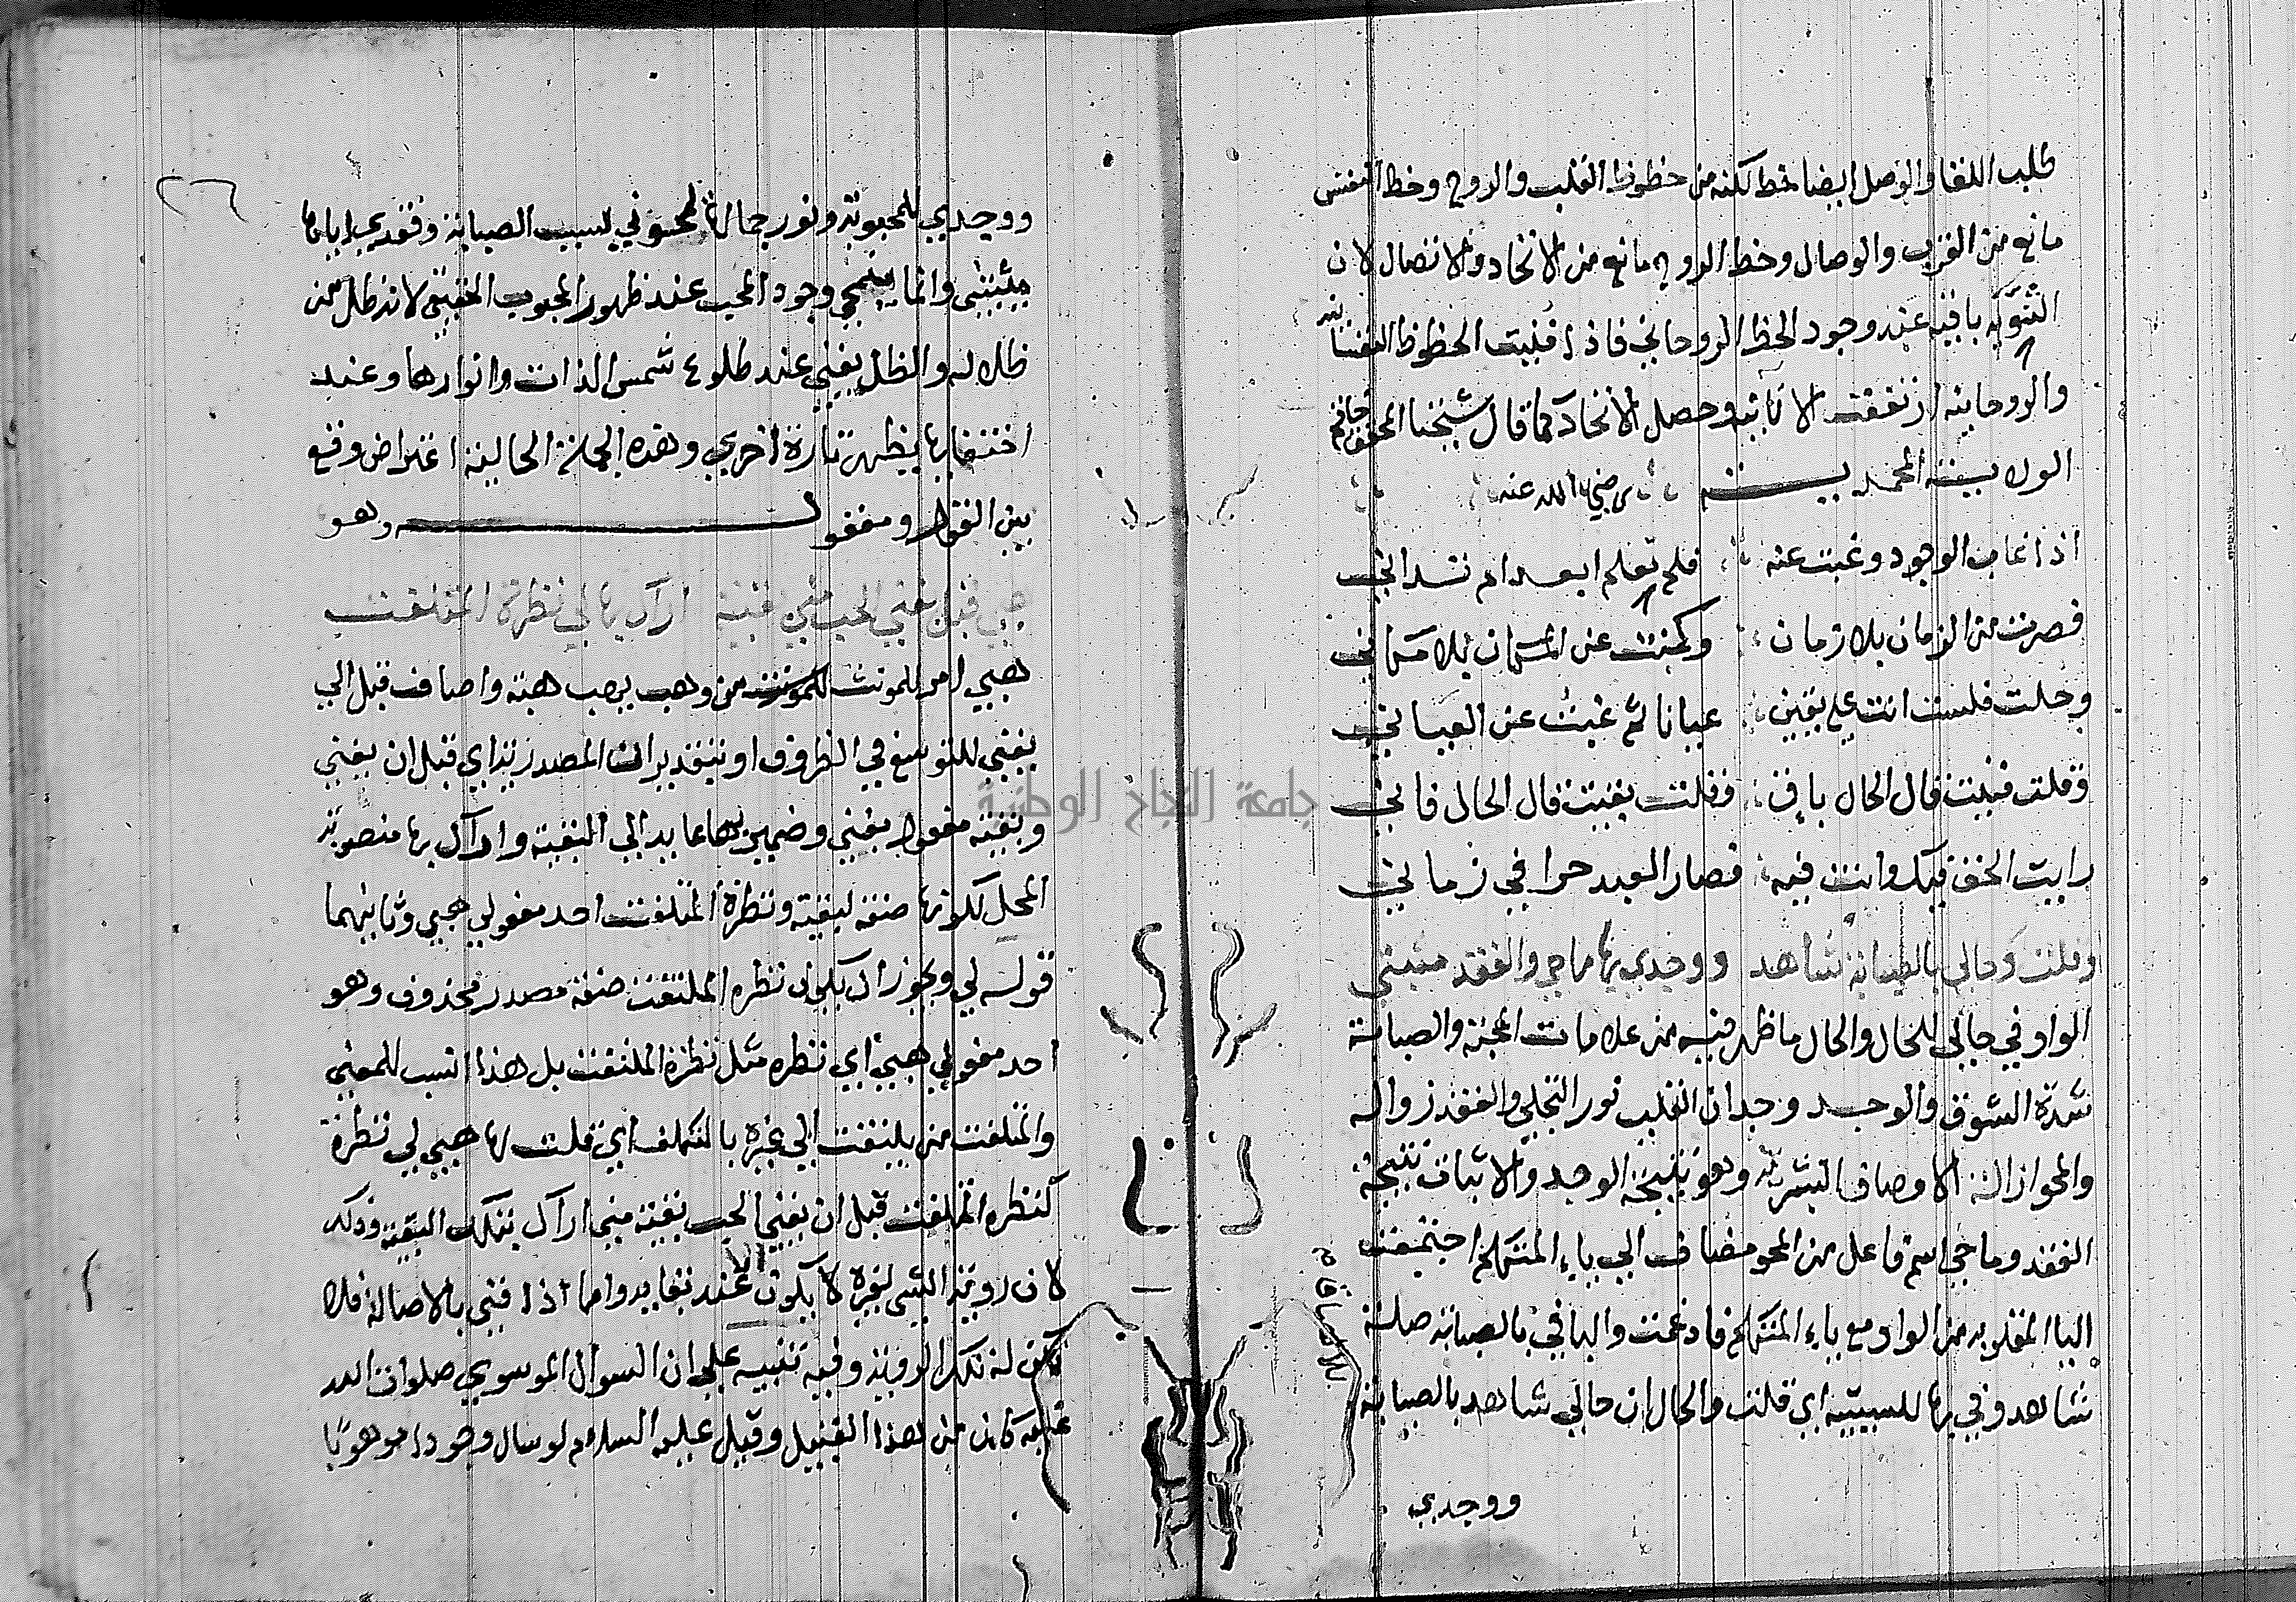 طلب اللقا والوصل ايضا خط لكنه من حظوظ القلب والروح وخط النفس
مانع من القرب والوصال وخط الروح مانع من الاتحاد والاتصال لان
الثنوية باقية عند وجود الحظ الروحاني فاذا فنيت الحظوظ النفسانية
والروحانية ارتفعت الاثانية وحصل الاتحاد كما قال شيخنا المحقق خاتم
الولاية المحمدية رضي الله عنه
اذا غاب الوجود وغبت عنه فلم تعلم ابعد ام تداني
فصرت من الزمان بلا زمان وكنت عن المكان بلا مكاني
وحلت فلست انت على يقين عيانا ثم غبت عن العياني
وقلت فنيت قال الحال باق وقلت بقيت قال الحال فاني
رايت الحق فيك وانت فيه فصار العبد حرا في زماني
وقلت وحالي بالصبابة شاهد ووجدي بها ماحي والفقد مثبتي
الواو في حالي للحال والحال ما ظهر فيه من علامات المحبة والصبابة
شدة الشوق والوجد وجدان القلب نور التجلي والفقد زواله
والمحو ازالة الاوصاف البشرية وهو نتيجة الوجد والاثبات نتيجة
الفقد وماحي اسم فاعل من المحو مضاف الى ياء المتكلم اجتمعت
اليا المقلوبة من الواو مع ياء المتكلم فادغمت والبا في بالصبابة صلة
شاهد وفي بها للسببية اي قلت والحال ان حالي شاهد بالصبابة
ووجدي
بالاضافة
٢٦
ووجدي للمحبوبة ونور جمالها لمحوني بسبب الصبابة وفقدي اياها
يثبتني وانما ينمحي وجود المحب عند ظهور المحبوب الحقيقي لانه ظل من
ظلاله والظل يفنى عند طلوع شمس الذات وانوارها وعند
اختفايها يظهر تارة اخرى وهذه الجملة الحالية اعتراض وقع
بين القول ومقوله وهو
هبي قبل يفني الحب مني بقية اراك بها لي نظرة المتلفت
هبي امر للمونث من وهب يهب هبة واضاف قبل الى
يفني للتوسع في الظروف او بتقدير ان المصدرية اي قبل ان يفني
وبقية مفعول يفني وضمير بها عايد الى البقية واراك بها منصوبة
المحل لكونها صفة لبقية ونظرة المتلفت احد مفعولي هبي وثانيهما
قوله لي ويجوز ان يكون نظرة الملتفت صفة مصدر محذوف وهو
احد مفعولي هبي اي نظرة مثل نظرة الملتفت بل هذا انسب للمعنى
والمتلفت من يلتفت الى غيره بالتكلف اي قلت لها هبي لي نظرة
كنظرة المتلفت قبل ان يفني الحب بقية مني اراك بتلك البقية وذلك
لان روية الشي لغيره لا يكون الا عند بقايه واما اذا فني بالاصالة فلا
يكن له تلك الروية وفيه تنبيه على ان السوال الموسوي صلوات الله
عليه كان من هذا القبيل وقيل عليه السلام لو سال وجودا موهوبا